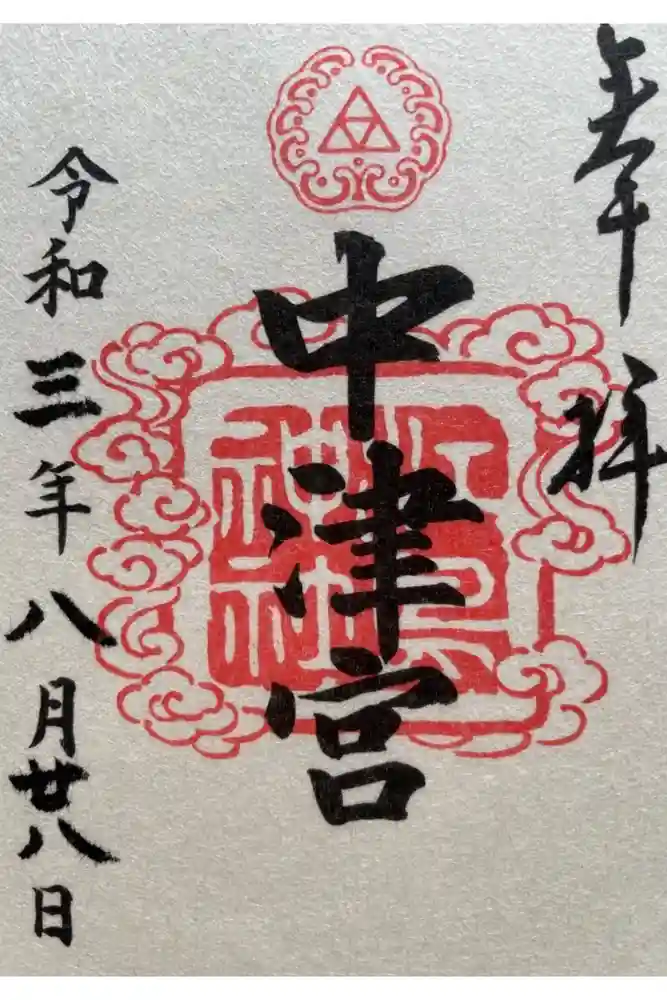 奉拝
中津宮
江島神社
令和三年八月廿八日